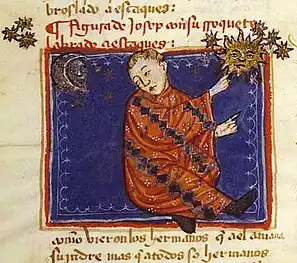 broslado a estaques:
¶ figura de Josep con su roquete
labrado a estaques:
como vieron los hermanos q̃ ael amaua
su padre mas q̃ atodos sꝰ hermanos